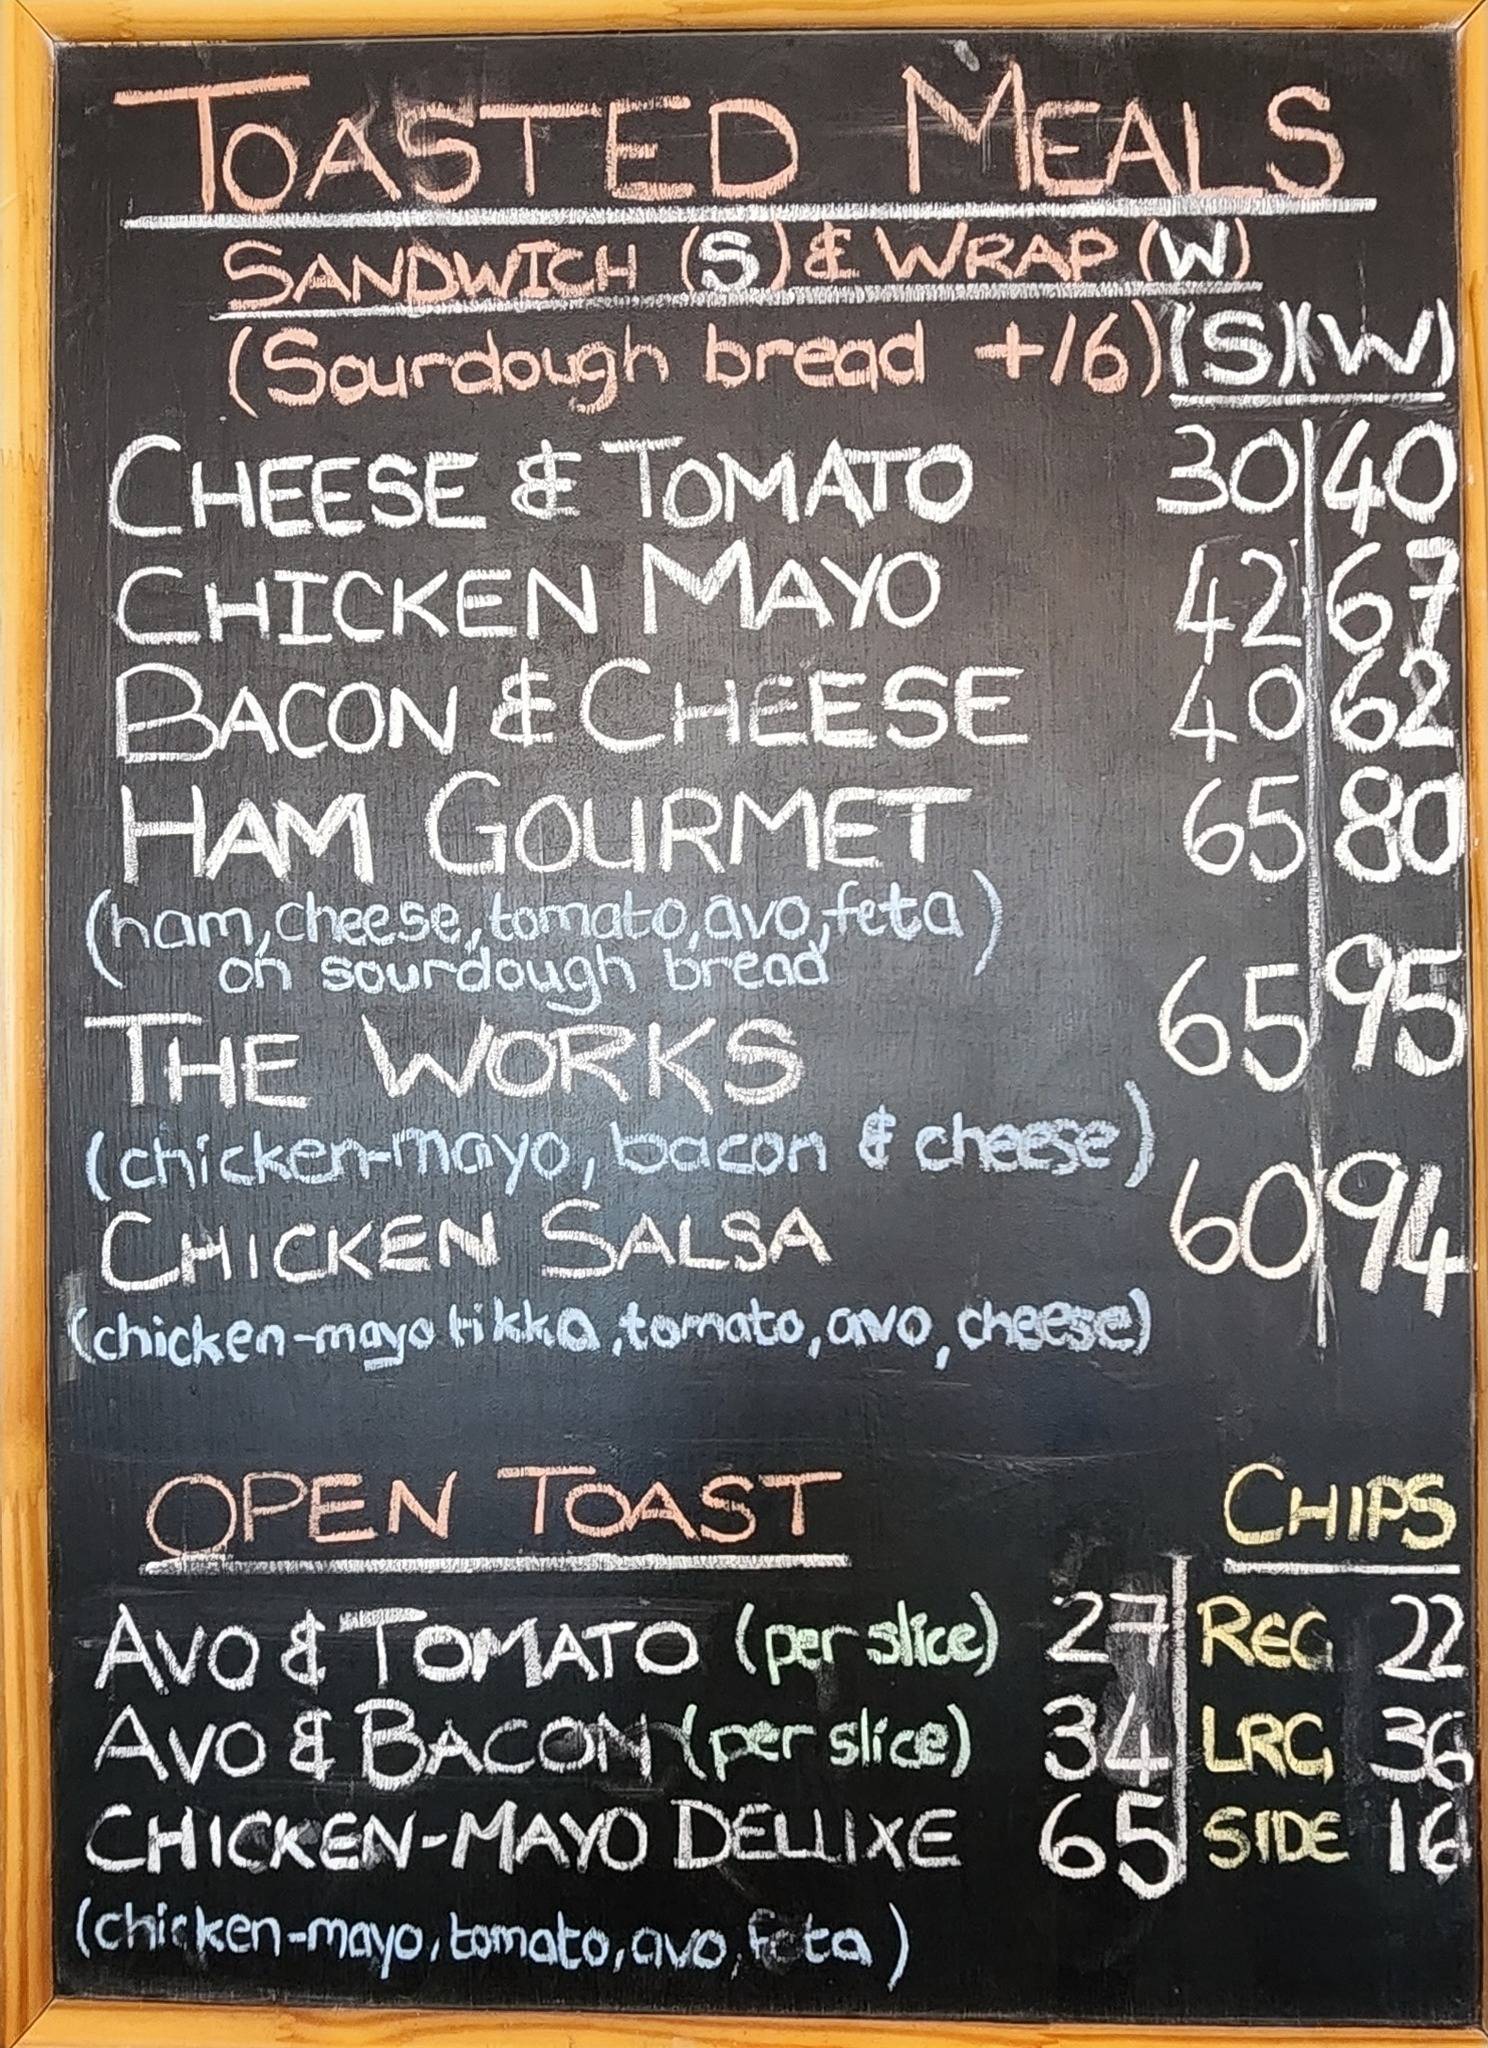 TOASTED MEALS
SANDWICH (S) & WRAP (W)
(Sourdough bread +16) (S) (W)
CHEESE & TOMATO 30 40
CHICKEN MAYO 42 67
BACON & CHEESE 40 62
HAM GOURMET 65 80
(ham, cheese, tomato, avo, feta)
on sourdough bread
THE WORKS 65 95
(chicken-mayo, bacon & cheese)
CHICKEN SALSA 60 94
(chicken-mayo tikka, tomato, avo, cheese)
OPEN TOAST
AVO & TOMATO (per slice) 27
AVO & BACON (per slice) 34
CHICKEN-MAYO DELUXE 65
(chicken-mayo, tomato, avo, feta)
CHIPS
REG 22
LRG 36
SIDE 16